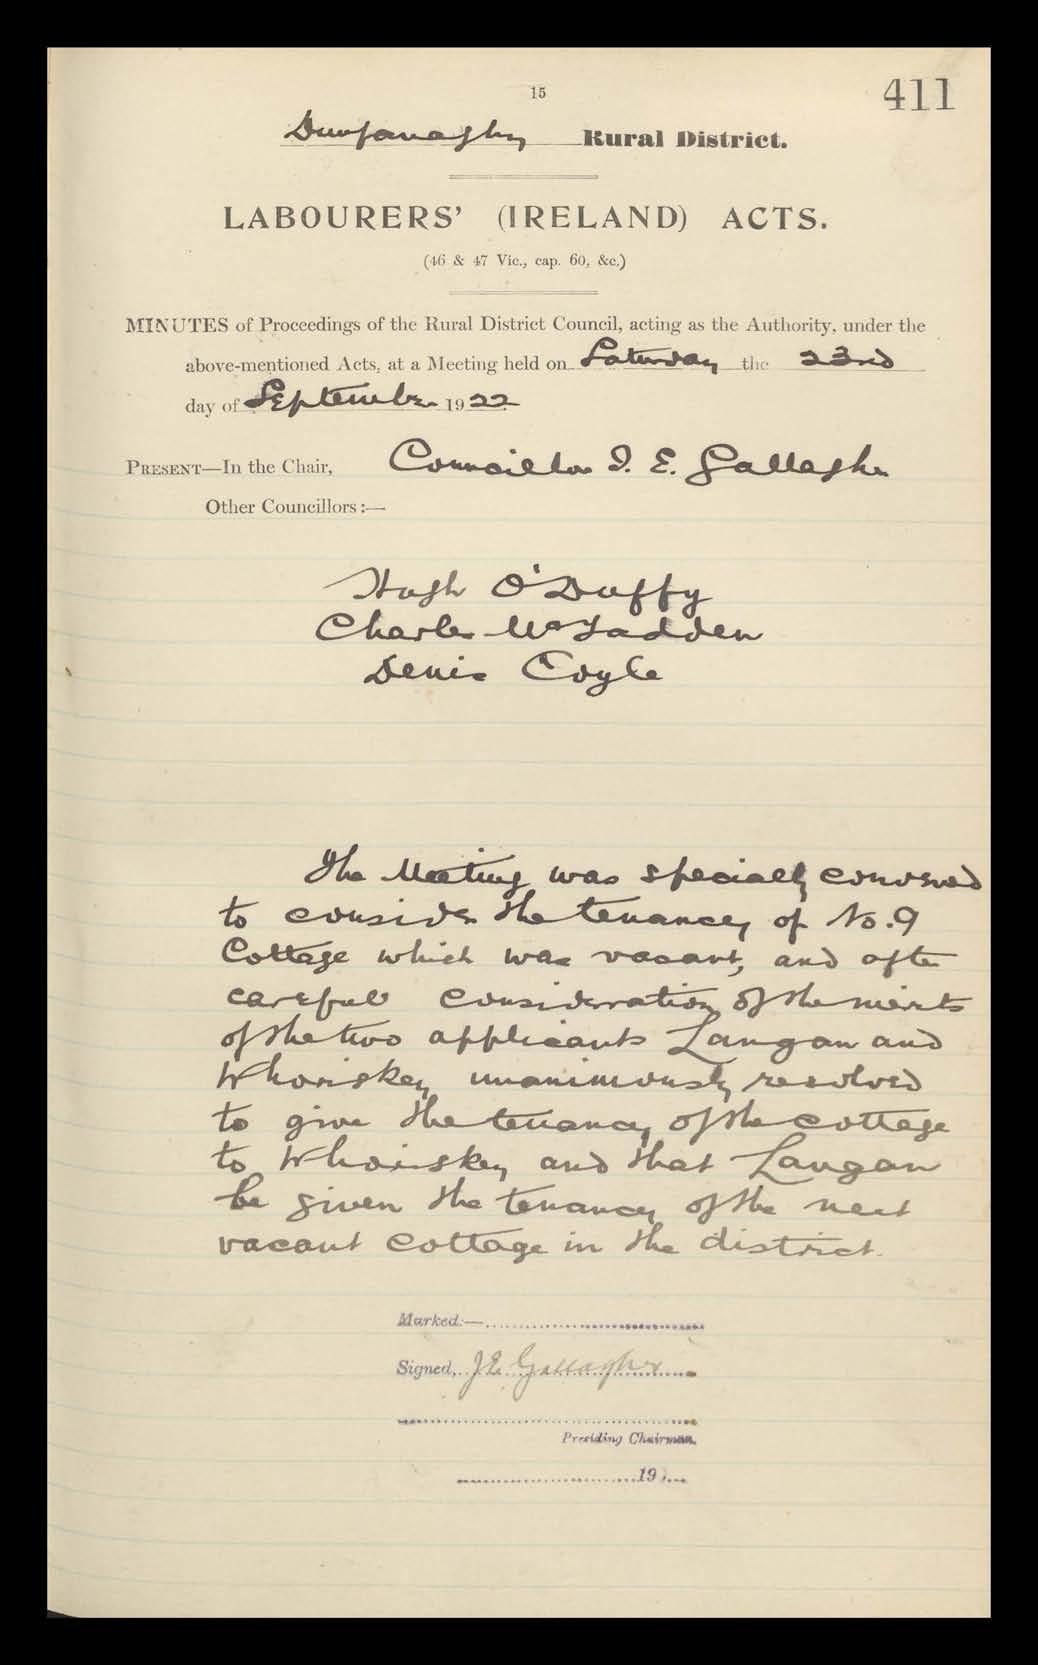 15
411
Dunfanaghy Rural District.
LABOURERS' (IRELAND) ACTS.
(46 & 47 Vic., cap. 60, &c.)
MINUTES of Proceedings of the Rural District Council, acting as the Authority, under the
above-mentioned Acts, at a Meeting held on Saturday the 23rd
day of September 1922
PRESENT—In the Chair, Councillor J. E. Gallagher
Other Councillors:—
Hugh O'Duffy
Charles McFadden
Denis Coyle
The Meeting was specially convened
to consider the tenancy of No. 9
Cottage which was vacant, and after
careful consideration of the merits
of the two applicants Langan and
Whoriskey unanimously resolved
to give the tenancy of the cottage
to Whoriskey and that Langan
be given the tenancy of the next
vacant cottage in the district.
Marked:—
Signed, J E Gallagher
Presiding Chairman.
19